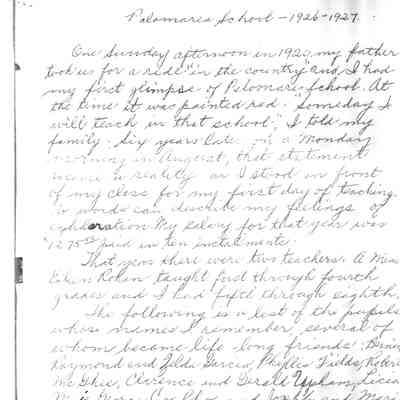 Palomares School - 1926-1927.
One Sunday afternoon in 1920, my father
took us for a ride "in the country" and I had
my first glimpse of Palomares School. At
the time it was painted red. "Someday I
will teach in that school," I told my
family. Six years later, on a Monday
morning in August, that statement
became a reality as I stood in front
of my class for my first day of teaching.
No words can describe my feelings of
My salary for that year was
paid in ten installments.
That year there were two teachers. A Miss
Rohan taught first through fourth
grades and I had fifth through eighth.
The following is a list of the pupils
whose names I remember, several of
whom became life long friends:
Raymond and Zelda Garcia, Phyllis Fields, Robert
McGhie, Clarence and Gerald
and Joseph and